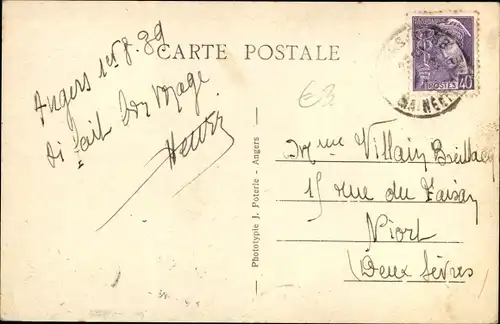 CARTE POSTALE
Angers 1er 8. 39
ai fait bon voyage
Henri
€3
Phototypie J. Poterie - Angers -
POSTES 40
MAINE ET
Mme Villain
15 rue du Faisan
Niort
(Deux Sèvres)